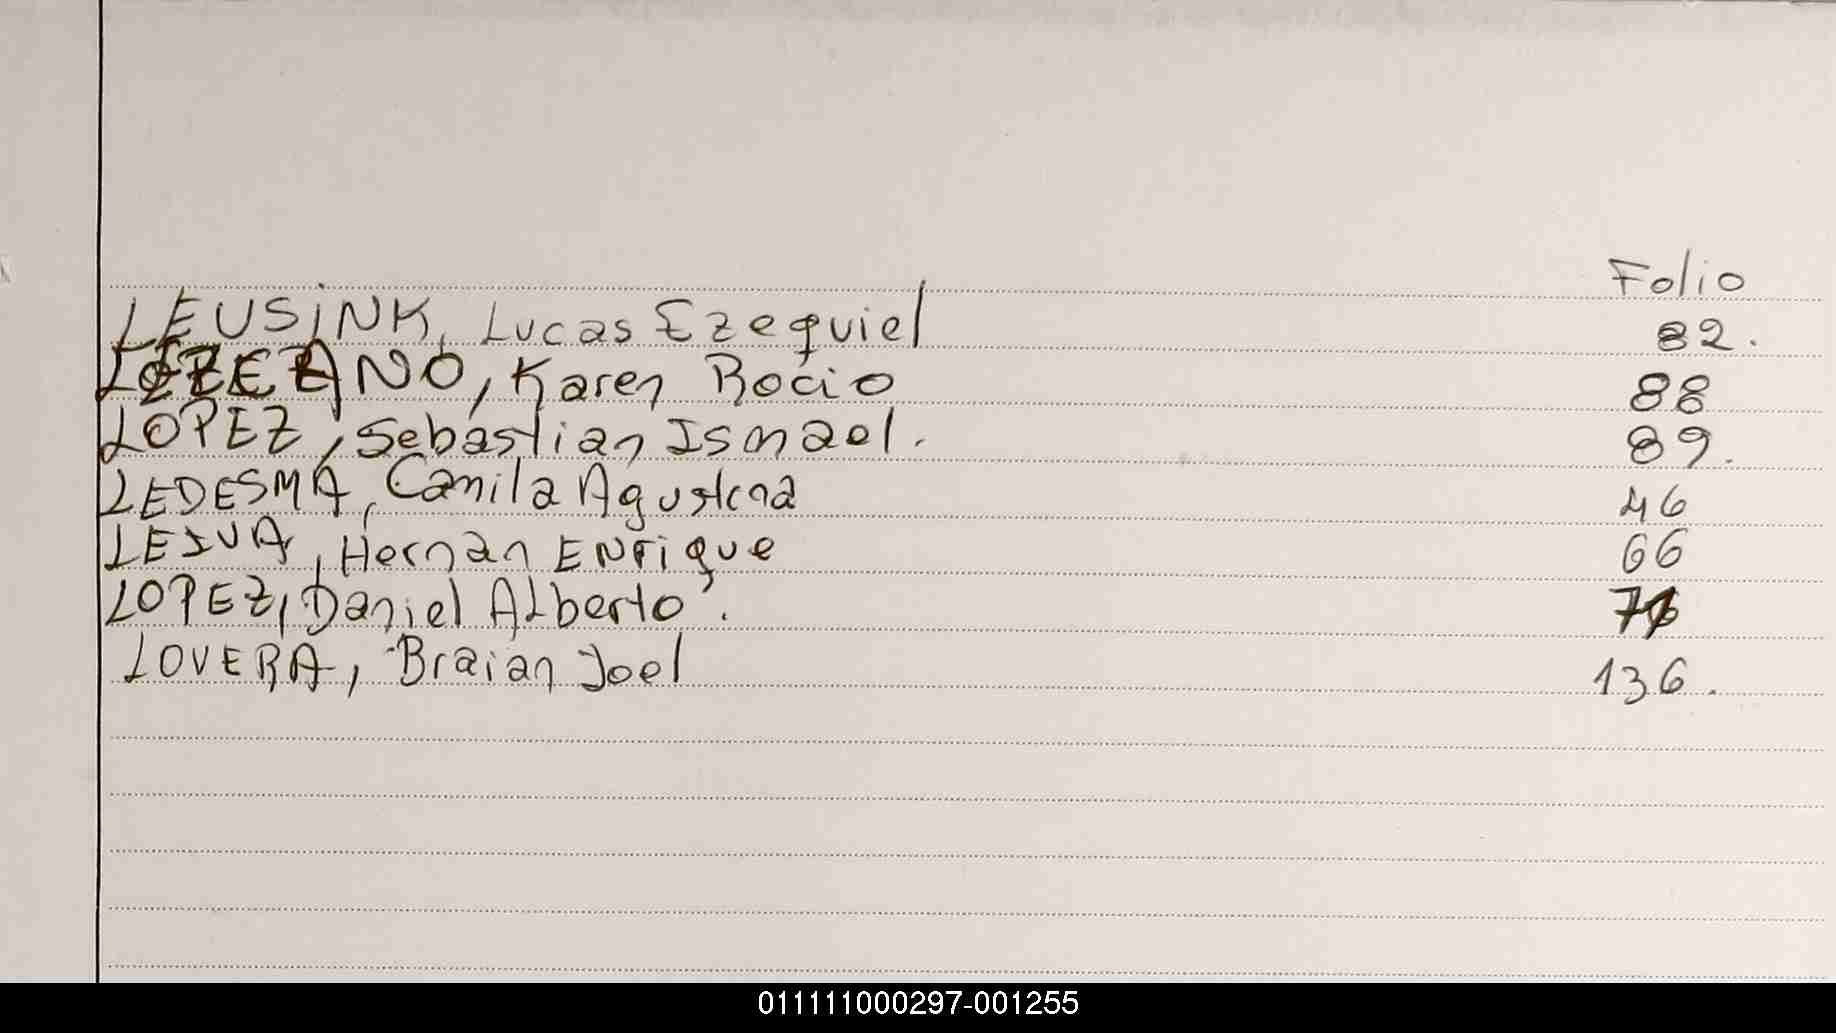 Folio
LEUSINK, Lucas Ezequiel 82.
Karen Rocio 88
LOPEZ, Sebastian Ismael. 89.
LEDESMA, Camila Agustina 46
LEIVA, Hernan ENrique 66
LOPEZ, Daniel Alberto.
LOVERA, Braian Joel 136.
011111000297-001255